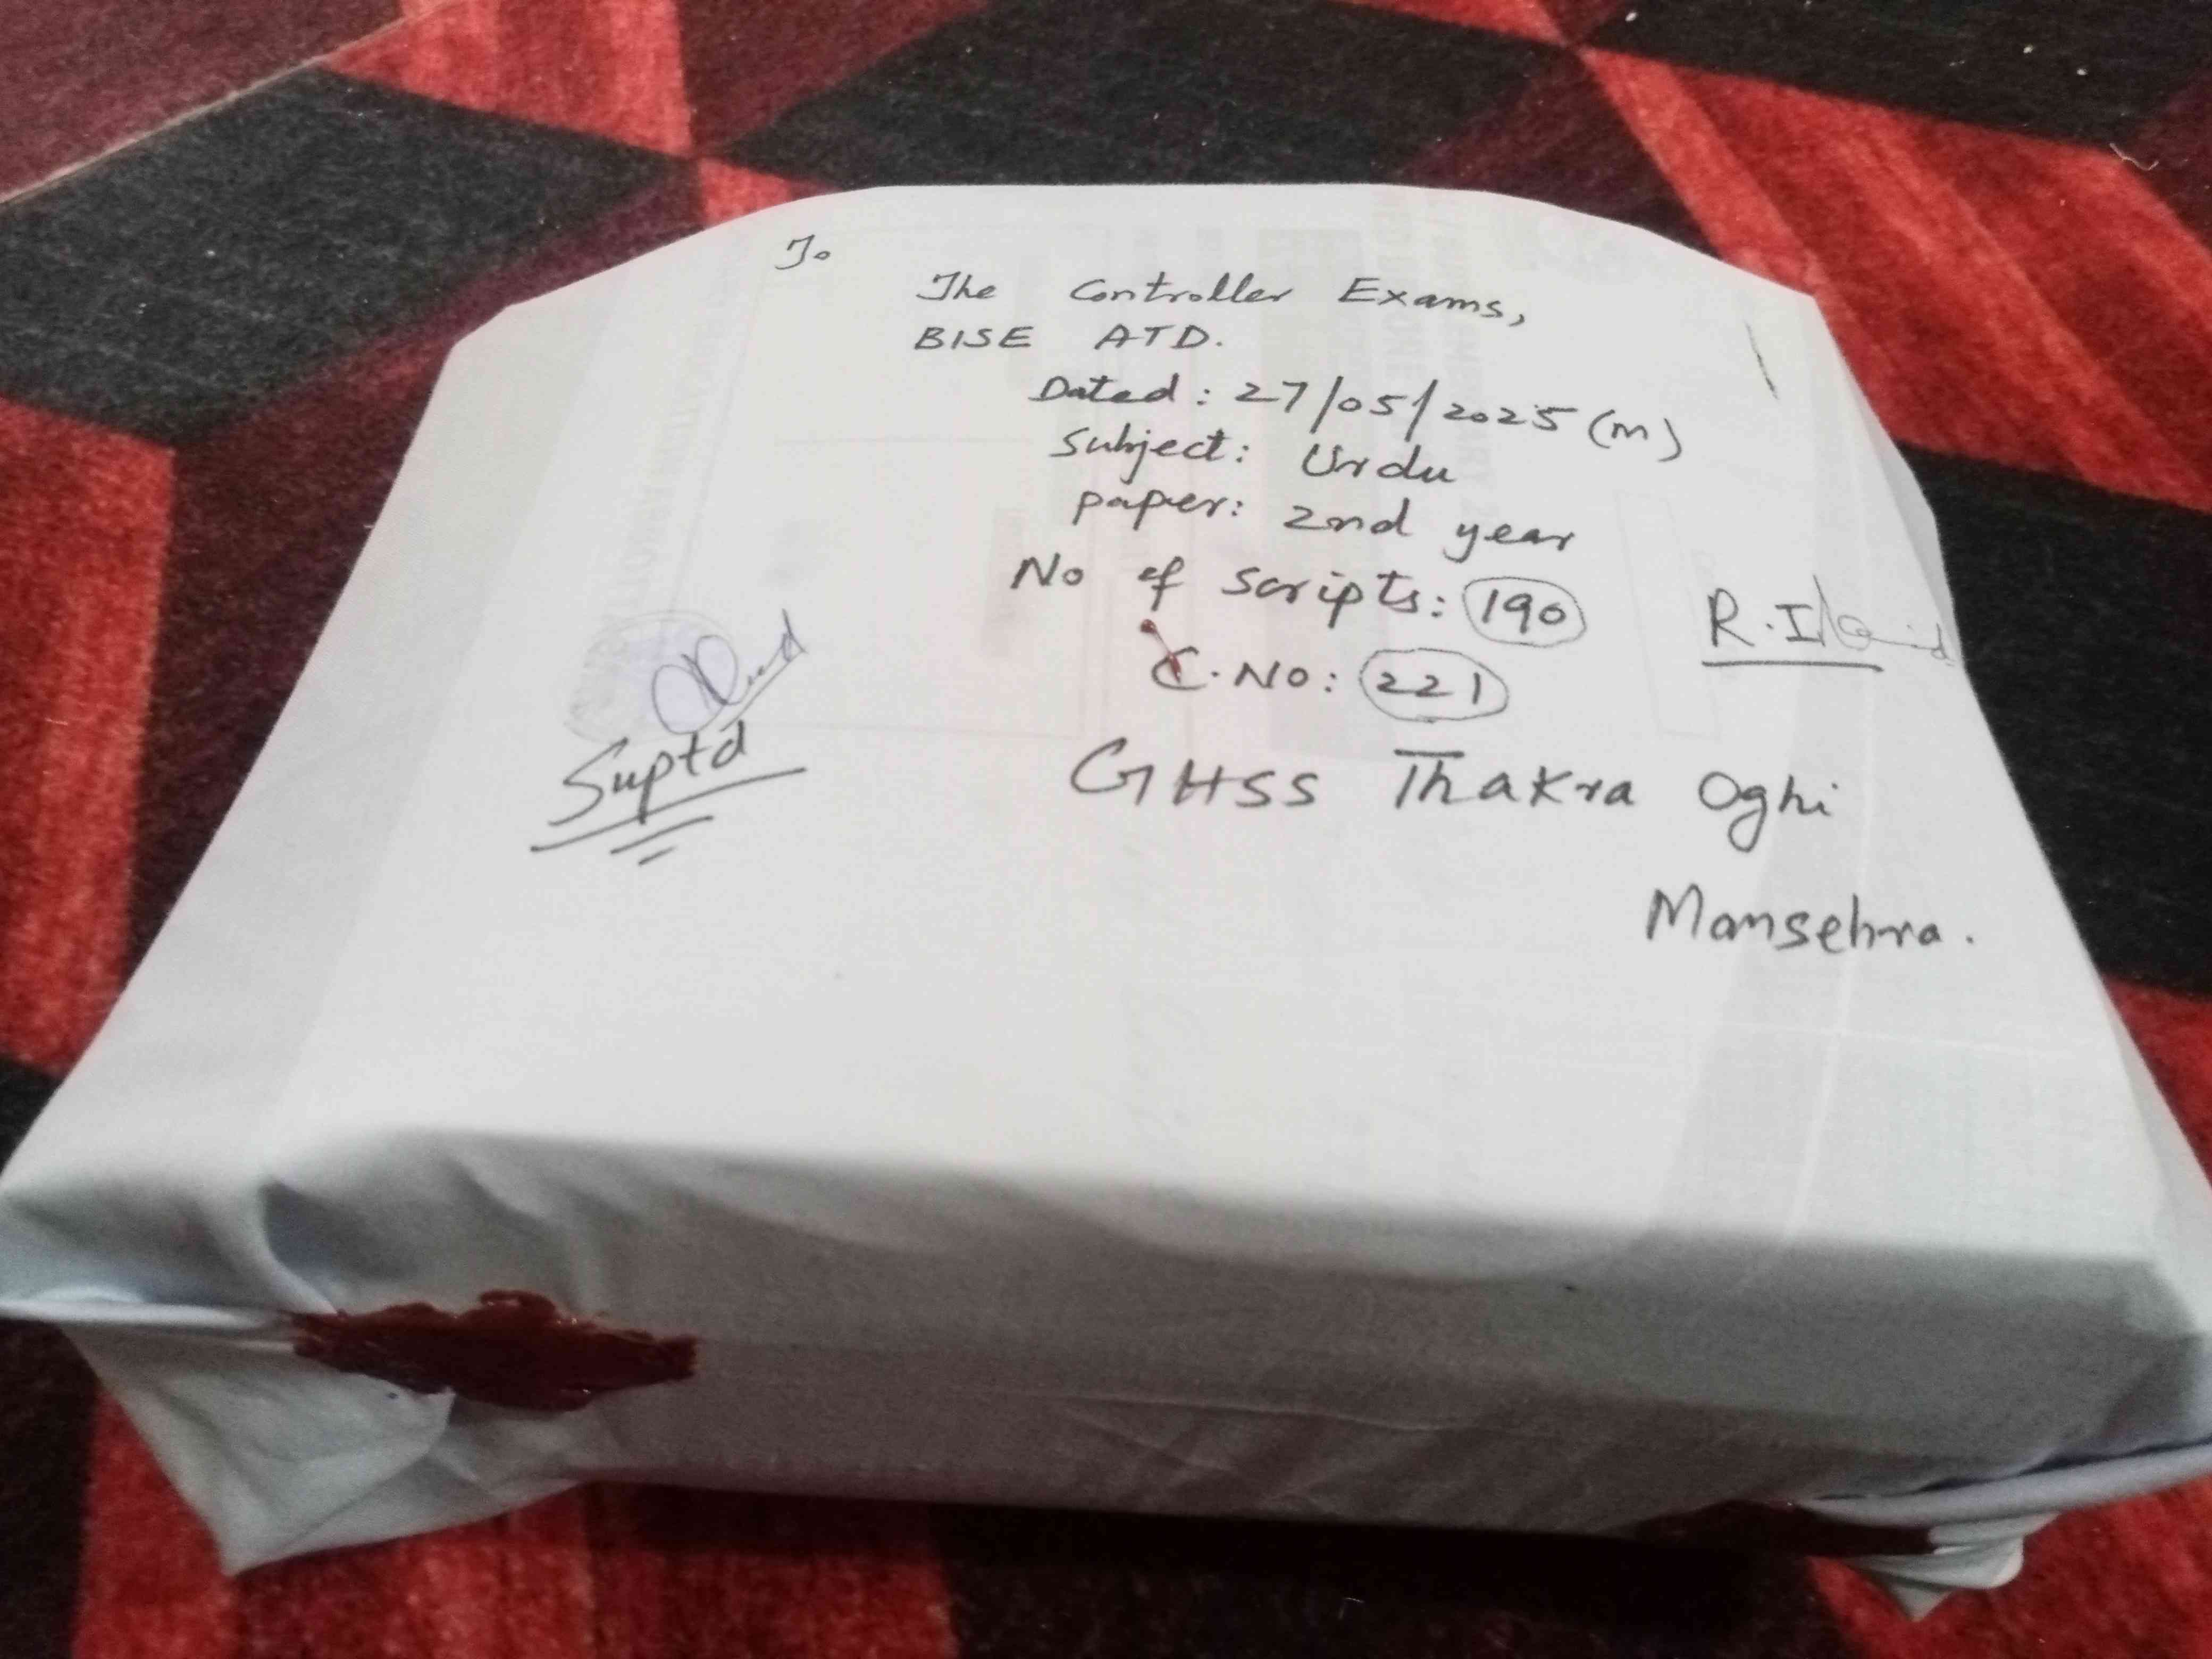 To
The Controller Exams,
BISE ATD.
Dated: 27/05/2025 (m)
Subject: Urdu
paper: 2nd year
No of Scripts: 190
C.No: 221
R.I
Suptd
GHSS Thakra Oghi
Mansehra.